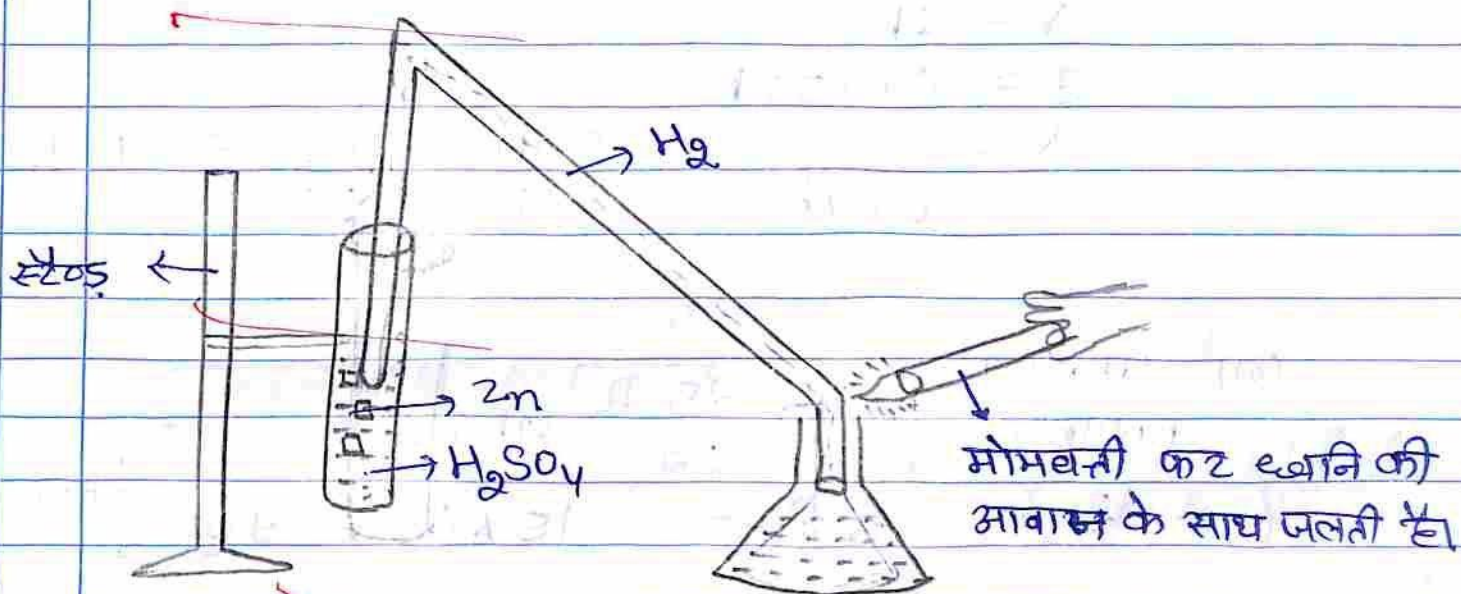 H₂
स्टैण्ड
Zn
H₂SO₄
मोमबत्ती फट ध्वनि की
आवाज के साथ जलती है।